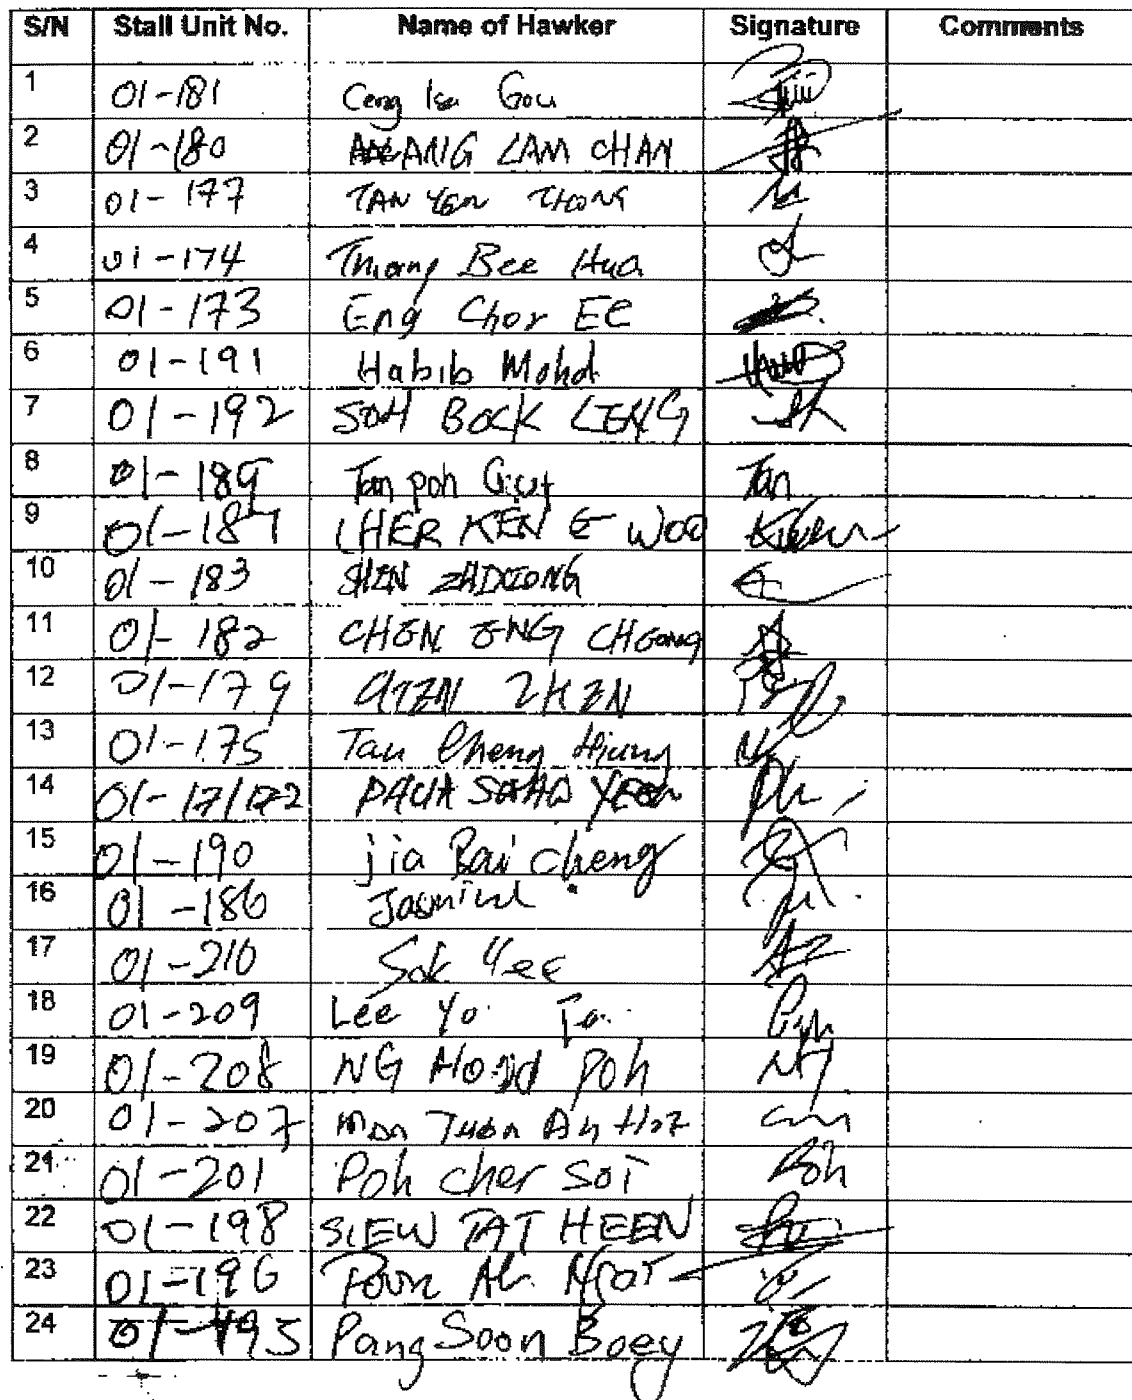 S/N Stall Unit No. Name of Hawker Signature Comments
1 01-181 Ceng Gou
2 01-180 ANG LAM CHAN
3 01-177 TAN YEN THONG
4 01-174 Thiang Bee Hua
5 01-173 Eng Chor EE
6 01-191 Habib Mohd.
7 01-192 SOH BOCK LENG
8 01-189 Tan poh Tan
9 01-187 CHER KENG WOO
10 01-183 SHEN
11 01-182 CHEN ENG CHEONG
12 01-179 ZHEN
13 01-175 Tan Cheng Hiung
14 01-171/172
15 01-190 jia Bai cheng
16 01-186
17 01-210 Sok Yee
18 01-209 Lee Yo
19 01-208 NG Poh
20 01-207 Tuan
21 01-201 Poh cher Soi Poh
22 01-198 SIEW TAT HEEN
23 01-196 Ah
24 01-195 Pang Soon Boey